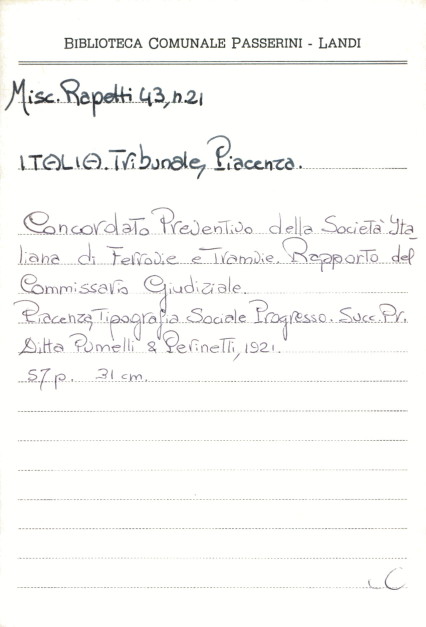 BIBLIOTECA COMUNALE PASSERINI - LANDI
Misc. Rapetti 43, n.21
ITALIA. Tribunale, Piacenza.
Concordato Preventivo della Società Ita
liana di Ferrovie e Tramvie. Rapporto del
Commissario Giudiziale.
Piacenza, Tipografia Sociale Progresso. Succ. Pr.
Ditta Pumelli & Perinetti, 1921.
57 p. 31 cm.